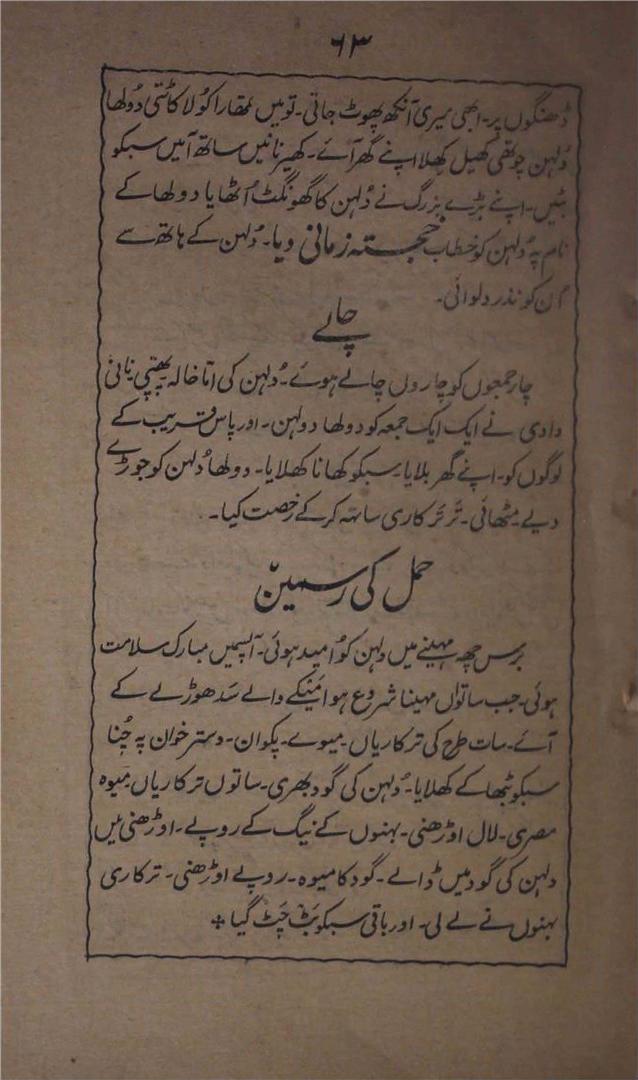 ۶۳
ڈھنگوں پر۔ ابھی میری آنکھ پھوٹ جاتی۔ تو میں تمھارا کولا کاٹتی دُولھا
دُلہن چوتھی کھیل کھلا اپنے گھر آئے۔ کھیر نانیں ساتھ آمیں سبکو
بٹیں۔ اپنے بڑے بزرگ نے دُلہن کا گھونگٹ اُٹھایا دولھا کے
نام پہ دُلہن کو خطاب خجستہ زمانی دیا۔ دُلہن کے ہاتھ سے
اُن کو نذر دلوائی۔
چالے
چار جمعوں کو چاروں چالے ہوئے۔ دُلہن کی اتا خالہ پھپی نانی
دادی نے ایک ایک جمعہ کو دولھا دولہن۔ اور پاس قریب کے
لوگوں کو۔ اپنے گھر بلایا۔ سبکو کھانا کھلایا۔ دولھا دُلہن کو جوڑے
دیے مٹھائی۔ تَر تَرکاری ساتہہ کرکے رخصت کیا۔
حمل کی رسمین
برس چھ مہینے میں دلہن کو اُمید ہوئی۔ آپسمیں مبارک سلامت
ہوئی۔ جب ساتواں مہینا شروع ہوا مَیکے والے سَدھوڑ لے کے
آئے۔ سات طرح کی ترکاریاں۔ میوے۔ پکوان۔ دستر خوان پہ چُنا
سبکو بٹھا کے کھلایا۔ دُلہن کی گود بھری۔ ساتوں ترکاریاں میوہ
مصری۔ لال اوڑھنی۔ بہنوں کے نیگ کے روپے۔ اوڑھنی میں
دلہن کی گود میں ڈالے۔ گود کا میوہ۔ روپے اوڑھنی۔ ترکاری
بہنوں نے لے لی۔ اور باقی سبکو بَٹ چَٹ گیا +